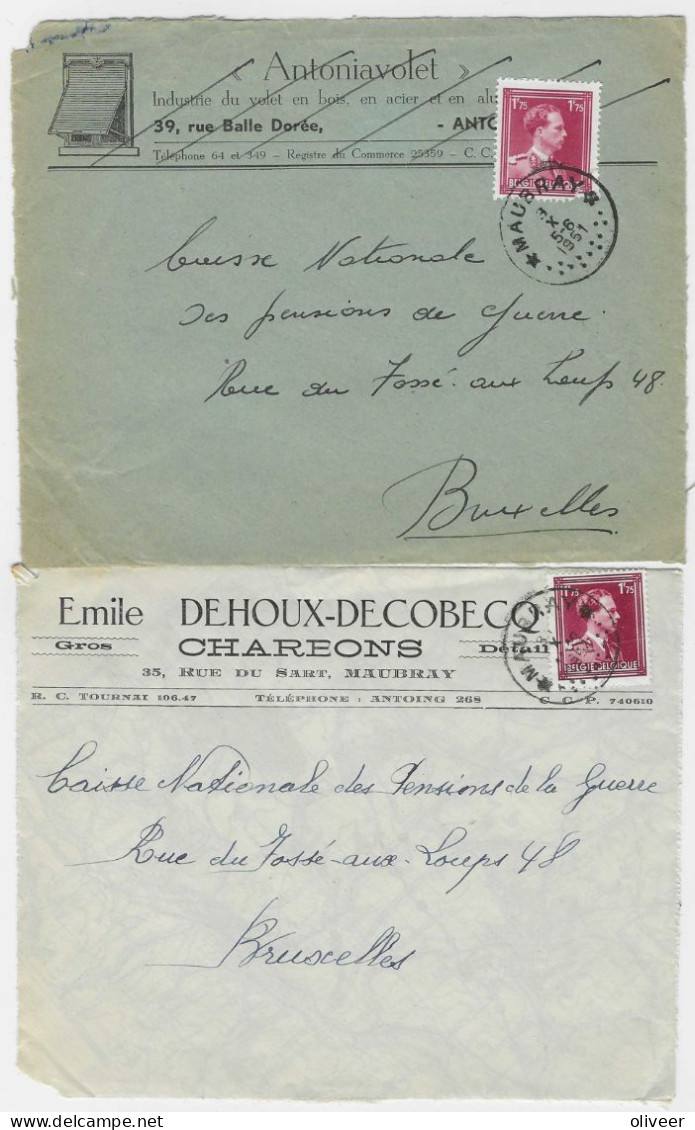 « Antoniavolet »
Industrie du volet en bois, en acier et en alu
39, rue Balle Dorée, - ANTO
Téléphone 64 et 349 - Registre du Commerce 25359 - C. C.
1F75 1F75
BELGIE-BELGIQUE
MAUBRAY
Caisse Nationale
des pensions de Guerre
Rue du Fossé-aux Loups 48
Bruxelles
Emile DEHOUX-DECOBECQ
Gros CHARBONS Détail
35, RUE DU SART, MAUBRAY
R. C. TOURNAI 106.47 TÉLÉPHONE : ANTOING 268 C. C. P. 740610
1F75 1F75
BELGIE-BELGIQUE
MAUBRAY
Caisse Nationale des Pensions de la Guerre
Rue du Fossé-aux-Loups 48
Bruxelles
oliveer